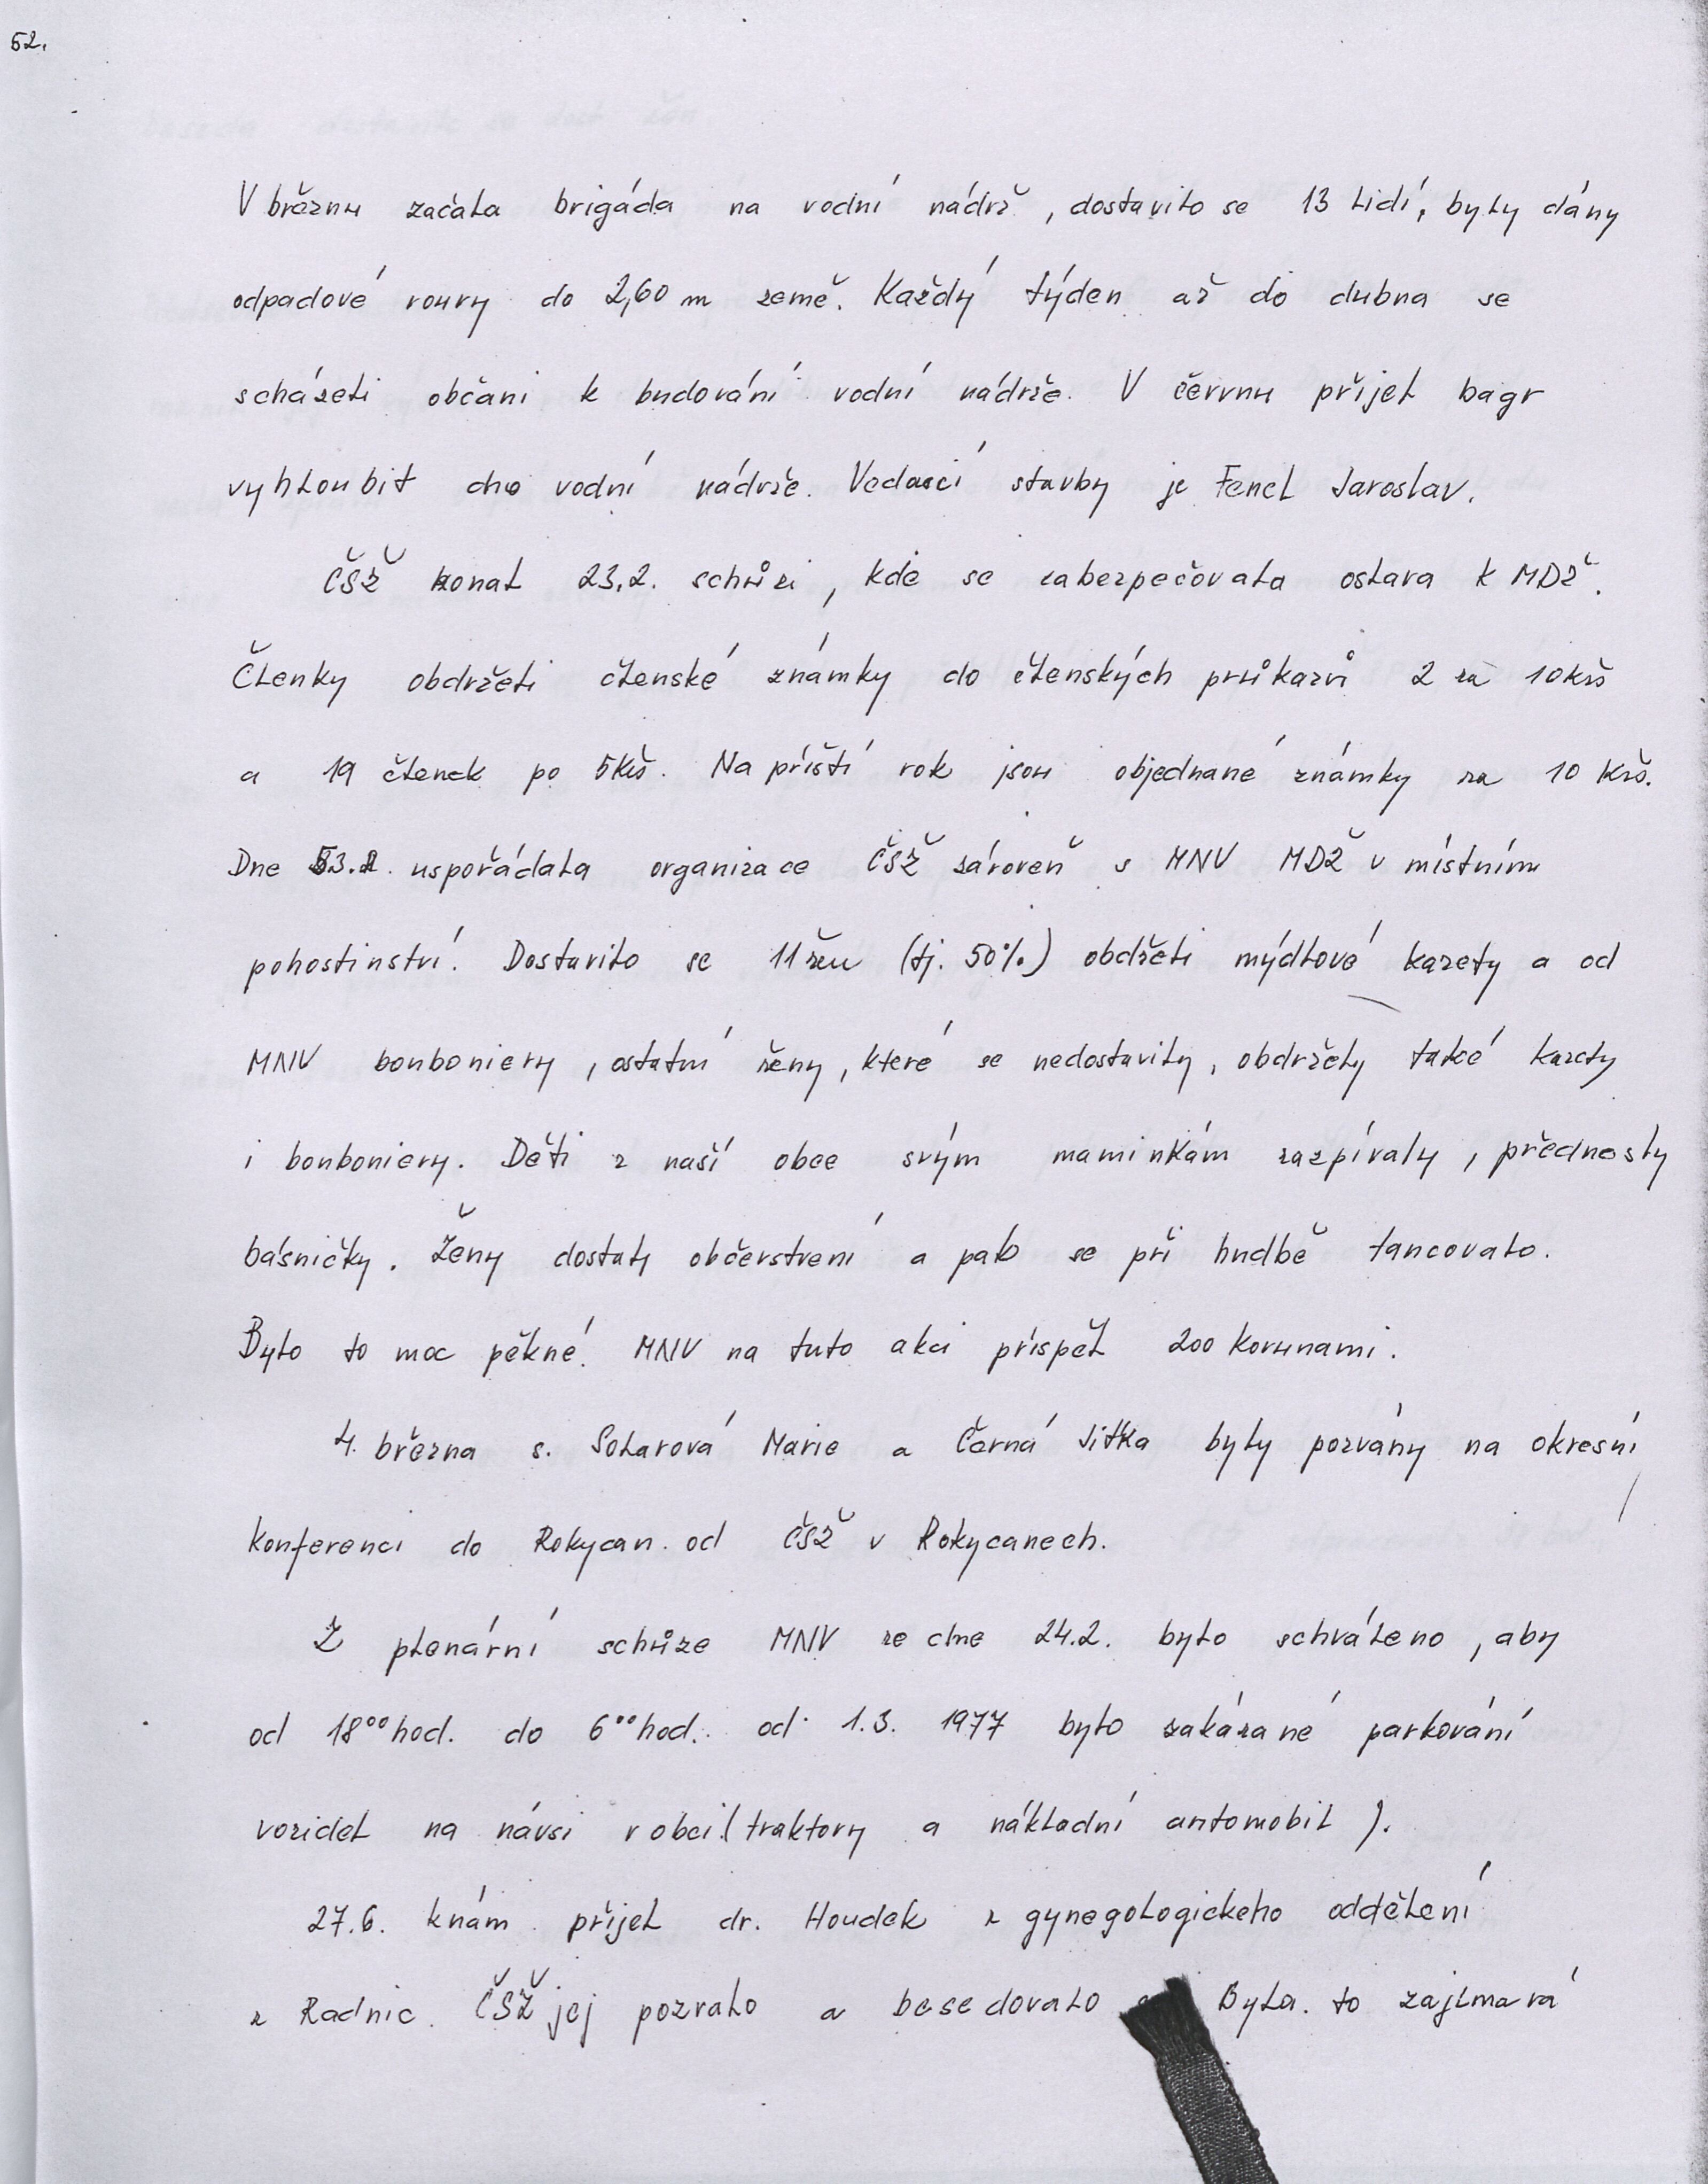 52.
V březnu začala brigáda na vodní nádrž, dostavilo se 13 lidí, byly dány
odpadové roury do 2,60 m země. Každý týden až do dubna se
scházeli občani k budování vodní nádrže. V červnu přijel bagr
vyhloubit dno vodní nádrže. Vedoucí stavby je Fencl Jaroslav.
ČSŽ konal 23.2. schůzi, kde se zabezpečovala oslava k MDŽ.
Členky obdrželi členské známky do členských průkazů 2 za 10 kčs
a 19 členek po 5 Kčs. Na příští rok jsou objednané známky za 10 Kčs.
Dne uspořádala organizace ČSŽ zároveň s MNV MDŽ v místním
pohostinství. Dostavilo se 11 žen (tj. 50%) obdrželi mýdlové kazety a od
MNV bonboniery, ostatní ženy, které se nedostavily, obdržely také kazety
i bonboniery. Děti z naší obce svým maminkám zazpívaly, přednesly
básničky. Ženy dostaly občerstvení a pak se při hudbě tancovalo.
Bylo to moc pěkné. MNV na tuto akci přispěl 200 korunami.
4. března s. Solarová Marie a Černá Jitka byly pozvány na okresní
konferenci do Rokycan od ČSŽ v Rokycanech.
Z plenární schůze MNV ze dne 24.2. bylo schváleno, aby
od 18⁰⁰ hod. do 6⁰⁰ hod. od 1.3. 1977 bylo zakázané parkování
vozidel na návsi v obci (traktory a nákladní automobil).
27.6. k nám přijel dr. Houdek z gynegologického oddělení
z Radnic. ČSŽ jej pozvalo a besedovalo Byla to zajímavá